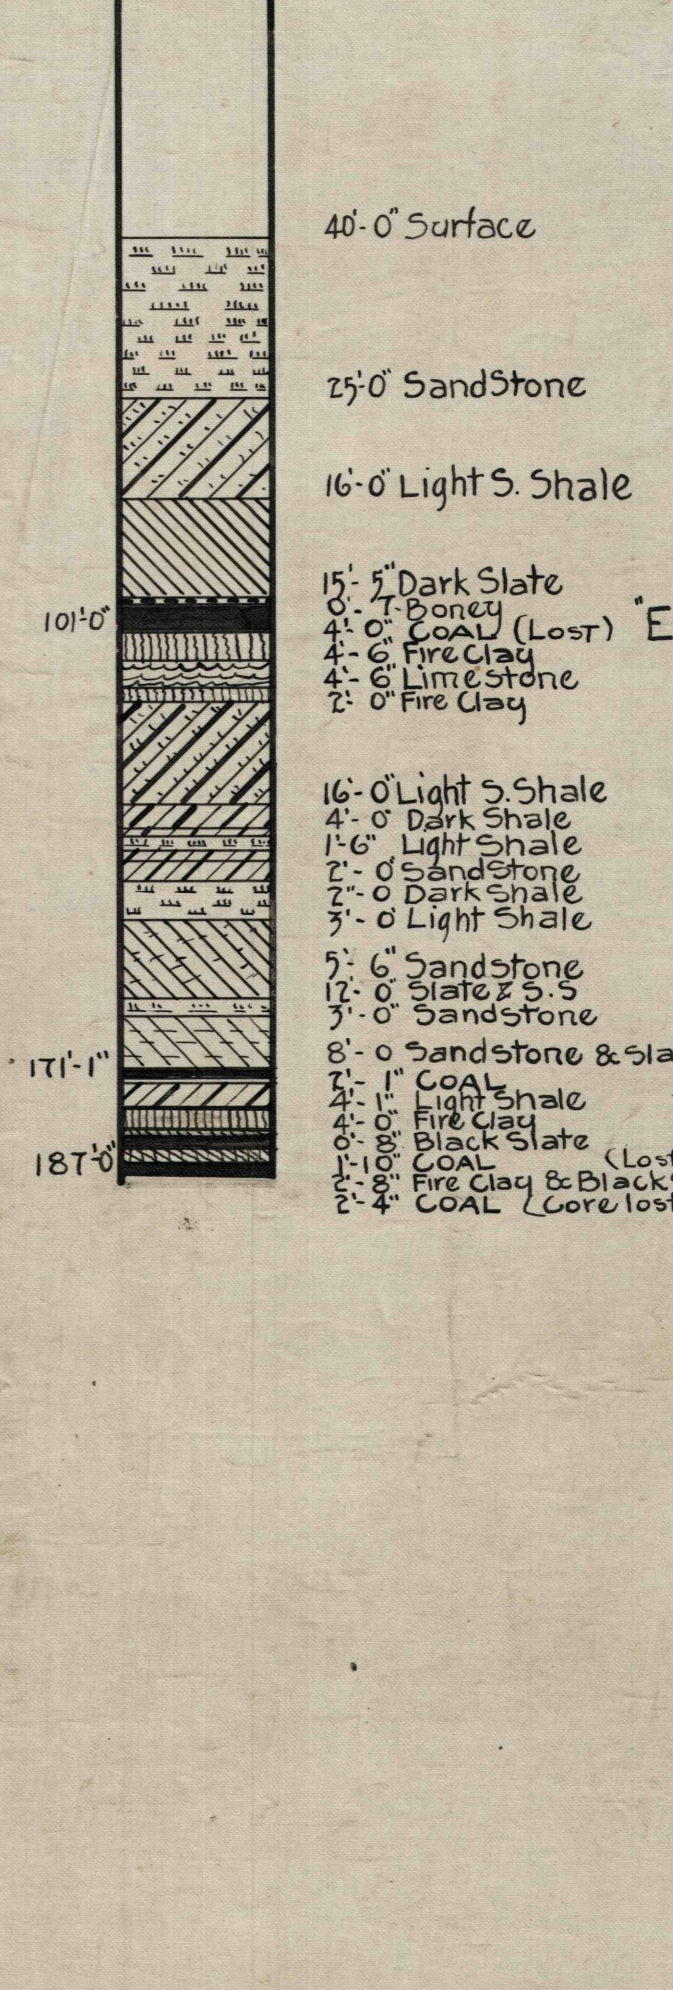 40'-0" Surface
25'-0" SandStone
16'-0" Light S. Shale
15'-5" Dark Slate
0'-7-Boney
101'-0" 4'-0" COAL (LOST) "E
4'-6" Fire Clay
4'-6" Limestone
2'-0" Fire Clay
16'-0" Light S. Shale
4'-0" Dark Shale
1'-6" Light Shale
2'-0" Sandstone
2"-0 Dark Shale
3'-0" Light Shale
5'-6" Sandstone
12'-0" Slate & S.S
3'-0" Sandstone
8'-0 Sandstone & Sla
171'-1" 2'-1" COAL
4'-1" Light Shale
4'-0" Fire Clay
0'-8" Black Slate
187'-0" 1'-10" COAL (Lost
2'-8" Fire Clay & Black
2'-4" COAL (Core lost